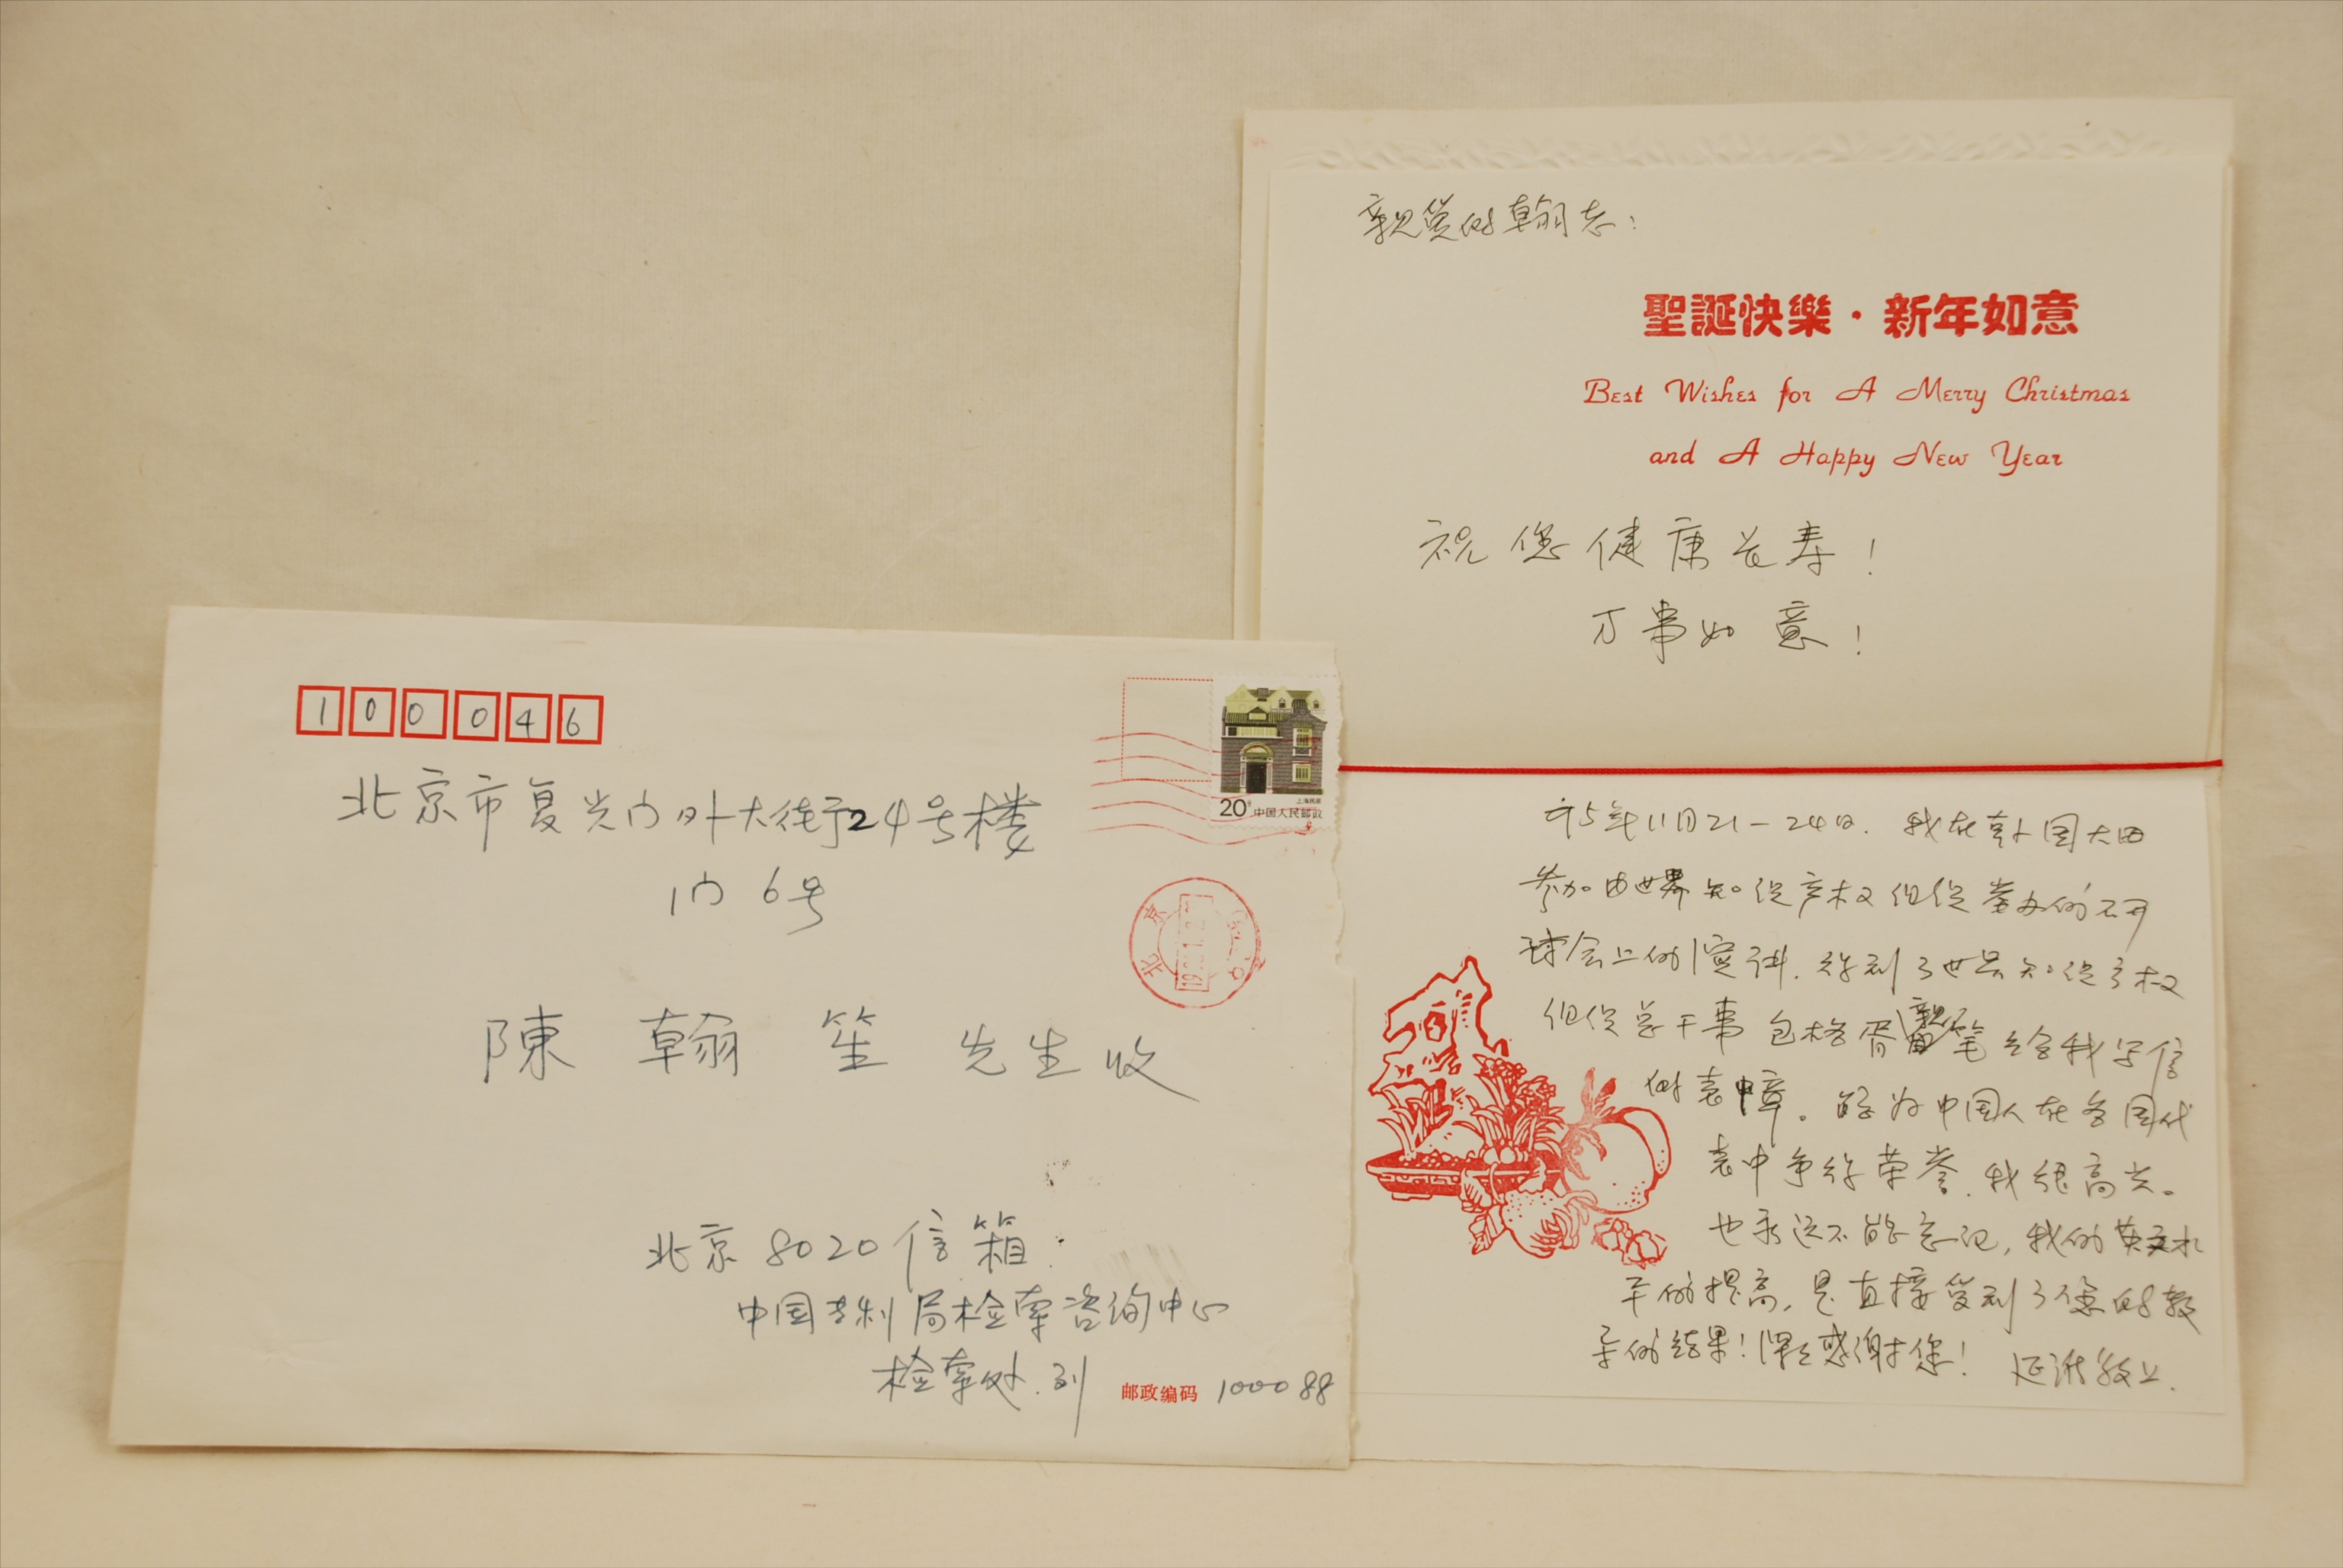 100046
北京市复兴门外大街24号楼
1门6号
陳翰笙 先生收
北京8020信箱
中国专利局检索咨询中心
检索处.刘
邮政编码 100088
20分 中国人民邮政
上海民居
北京
亲爱的翰老：
聖誕快樂·新年如意
Best Wishes for A Merry Christmas
and A Happy New Year
祝您健康长寿！
万事如意！
95年11月21—24日.我在韩国大田
参加由世界知识产权组织举办的研
讨会上的演讲.得到了世界知识产权
组织总干事包格胥亲笔给我写信
的表彰。能为中国人在各国代
表中争得荣誉.我很高兴。
也永远不能忘记,我的英文水
平的提高,是直接受到了您的教
导的结果！深感谢您！
敬上.